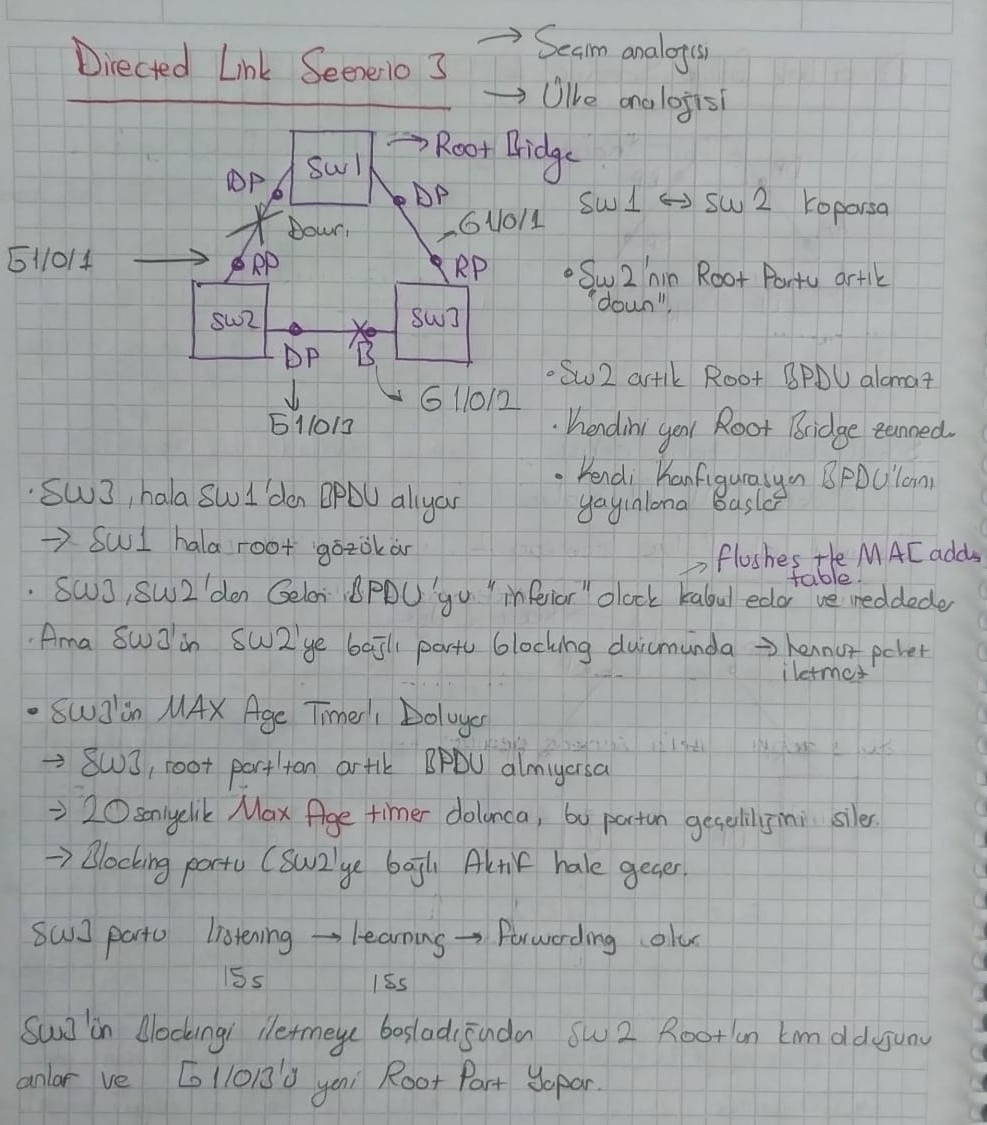 Directed Link Seenerio 3
→ Seçim analojisi
→ Ülke analojisi
SW1
→ Root Bridge
DP
DP
Down
G1/0/1
G1/0/1 →
RP
RP
SW2
SW3
DP
B
G1/0/2
G1/0/3
SW1 ↔ SW2 koparsa
• SW2'nin Root Portu artık
"down".
• SW2 artık Root BPDU alamaz
• Kendini yeni Root Bridge zanneder
• Kendi Konfigurasyon BPDU'larını
yayınlama başlar
• SW3, hala SW1'den BPDU alıyor
→ SW1 hala root gözükür
→ flushes the MAC adds
table.
• SW3, SW2'den Gelen BPDU'yu "inferior" olarak kabul eder ve reddeder
• Ama SW3'ün SW2'ye bağlı portu blocking durumunda → hennuz paket
iletmez
• SW3'ün MAX Age Timer'ı Doluyor
→ SW3, root port'tan artık BPDU almıyorsa
→ 20 saniyelik Max Age timer dolunca, bu portun geçerliliğini siler.
→ Blocking portu (SW2'ye bağlı Aktif hale geçer.
SW3 portu listening → learning → forwarding olur
15s 15s
SW3'ün Blockingi iletmeye başladığından SW2 Root'un kim olduğunu
anlar ve G1/0/3'ü yeni Root Port Yapar.